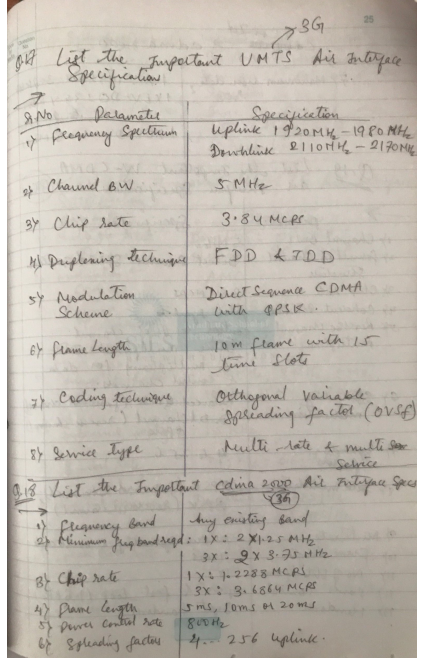 25
3G
Q.17 List the Important UMTS Air Interface
Specification
S.No Parameter Specification
1) Frequency Spectrum Uplink 1920MHz - 1980 MHz
Downlink 2110MHz - 2170MHz
2) Channel BW 5 MHz
3) Chip rate 3.84 MCPS
4) Duplexing technique FDD & TDD
5) Modulation Direct Sequence CDMA
Scheme with QPSK.
6) Frame Length 10m frame with 15
time slots
7) Coding technique Orthogonal Variable
Spreading factor (OVSF)
8) Service type Multi rate & multi
Service
Q.18 List the Important cdma 2000 Air Interface Specs
3G
1) Frequency Band Any existing Band
2) Minimum freq band reqd: 1X: 2X1.25 MHz
3X: 2X 3.75 MHz
3) Chip rate 1X: 1.2288 MCPS
3X: 3.6864 MCPS
4) Frame Length 5 ms, 10ms or 20 ms
5) Power control rate 800Hz
6) Spreading factors 4... 256 uplink.